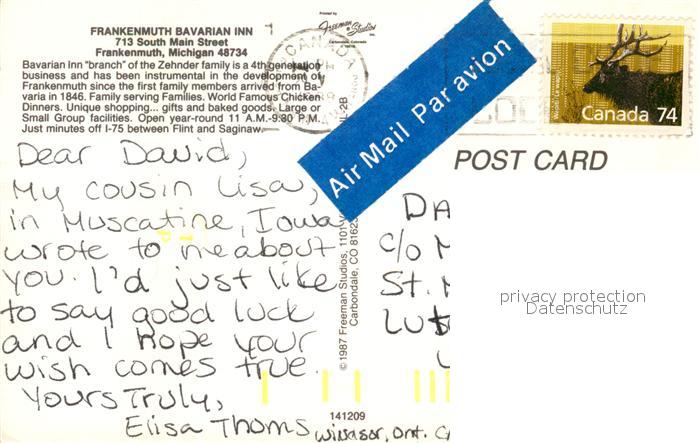 FRANKENMUTH BAVARIAN INN
713 South Main Street
Frankenmuth, Michigan 48734
Bavarian Inn "branch" of the Zehnder family is a 4th generation
business and has been instrumental in the development of
Frankenmuth since the first family members arrived from Ba-
varia in 1846. Family serving Families. World Famous Chicken
Dinners. Unique shopping... gifts and baked goods. Large or
Small Group facilities. Open year-round 11 A.M.-9:30 P.M.
Just minutes off I-75 between Flint and Saginaw.
Freeman Studios
CANADA
Air Mail Par avion
Canada 74
POST CARD
Dear David,
My cousin Lisa,
in Muscatine, Iowa
wrote to me about
you. I'd just like
to say good luck
and I hope your
wish comes true.
Yours Truly,
Elisa Thoms
Windsor, Ont.
© 1987 Freeman Studios, 1101
Carbondale, CO 8162
141209
DA
c/o
St.
privacy protection
Datenschutz